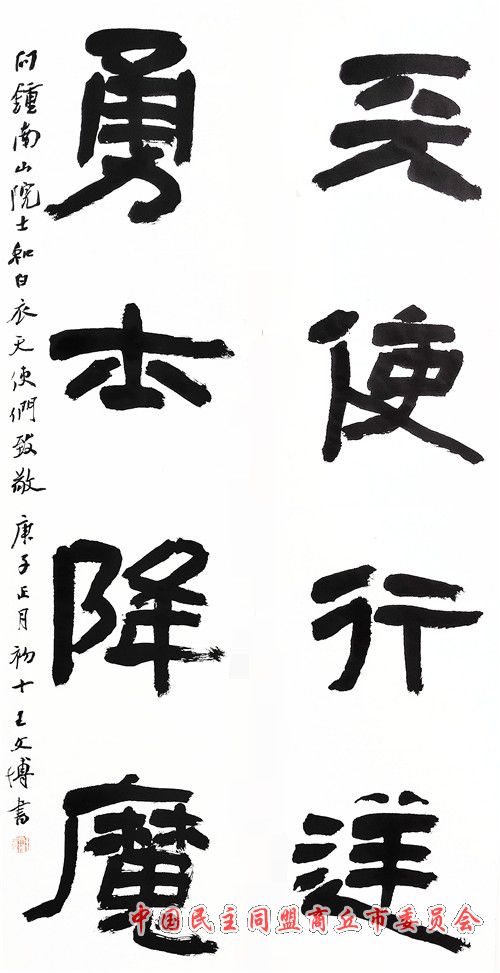 天使行逆
勇士降魔
向鍾南山院士和白衣天使們致敬 庚子正月初十 王文博書
中国民主同盟商丘市委员会